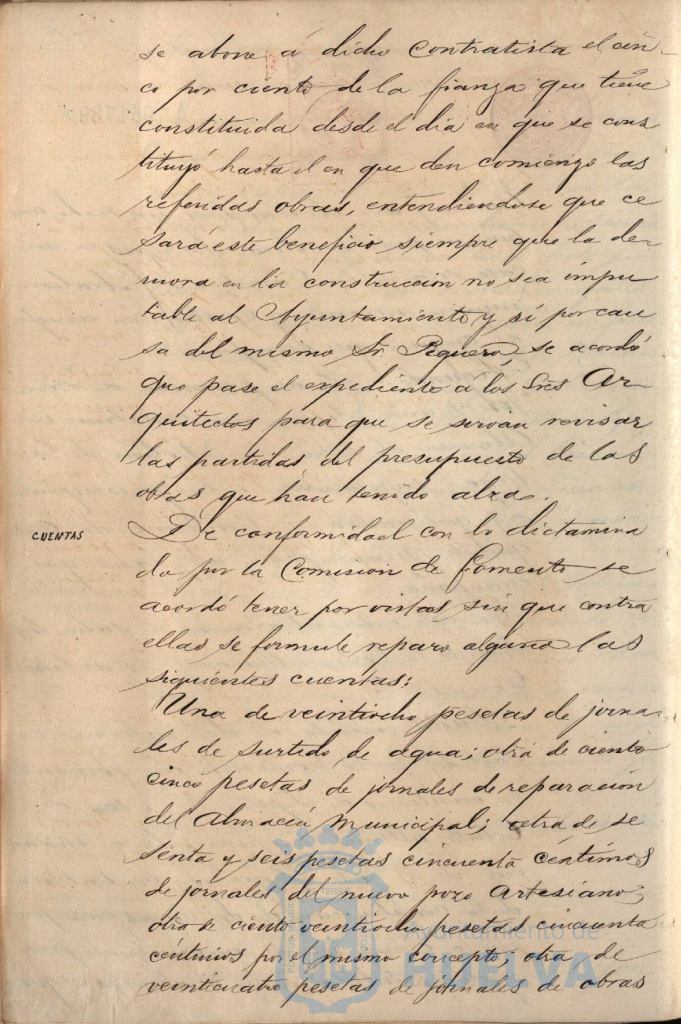 se abone á dicho Contratista el cin-
co por ciento de la fianza que tiene
constituida desde el dia en que se cons
tituyó hasta el en que den comienzo las
referidas obras, entendiendose que ce
sará este beneficio siempre que la de-
mora en la construccion no sea impu
table al Ayuntamiento y sí por cau
sa del mismo Sr. Peguero, se acordó
que pase el expediente á los Sres Ar-
quitectos para que se sirvan revisar
las partidas del presupuesto de las
obras que han tenido alza.
CUENTAS
De conformidad con lo dictamina
do por la Comision de Fomento se
acordó tener por vistas sin que contra
ellas se formule reparo alguno las
siguientes cuentas:
Una de veintiocho pesetas de jorna-
les de surtido de agua; otra de ciento
cinco pesetas de jornales de reparación
del Almacén Municipal; otra de se
senta y seis pesetas cincuenta céntimos
de jornales del nuevo pozo Artesiano;
otra de ciento veintiocho pesetas cincuenta
céntimos por el mismo concepto; otra de
veinticuatro pesetas de jornales de obras
Ayuntamiento de
HUELVA